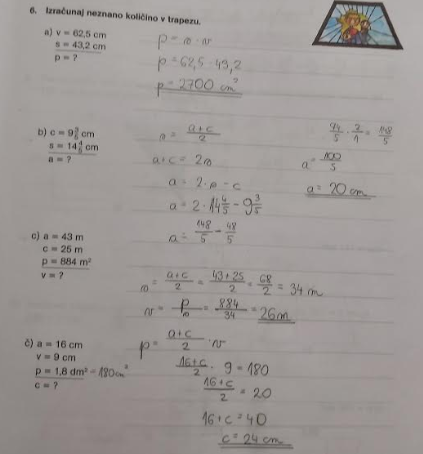 6. Izračunaj neznano količino v trapezu.
a) v = 62,5 cm
s = 43,2 cm
p = ?
p = s · v
p = 62,5 · 43,2
p = 2700 cm²
b) c = 9 3/5 cm
s = 14 4/5 cm
a = ?
s = (a+c)/2
a+c = 2s
a = 2·s - c
a = 2 · 14 4/5 - 9 3/5
a = 148/5 - 48/5
74/5 · 2/1 = 148/5
a = 100/5
a = 20 cm
c) a = 43 m
c = 25 m
p = 884 m²
v = ?
s = (a+c)/2 = (43+25)/2 = 68/2 = 34 m
v = p/s = 884/34 = 26 m
č) a = 16 cm
v = 9 cm
p = 1,8 dm² = 180 cm²
c = ?
p = (a+c)/2 · v
(16+c)/2 · 9 = 180
(16+c)/2 = 20
16+c = 40
c = 24 cm